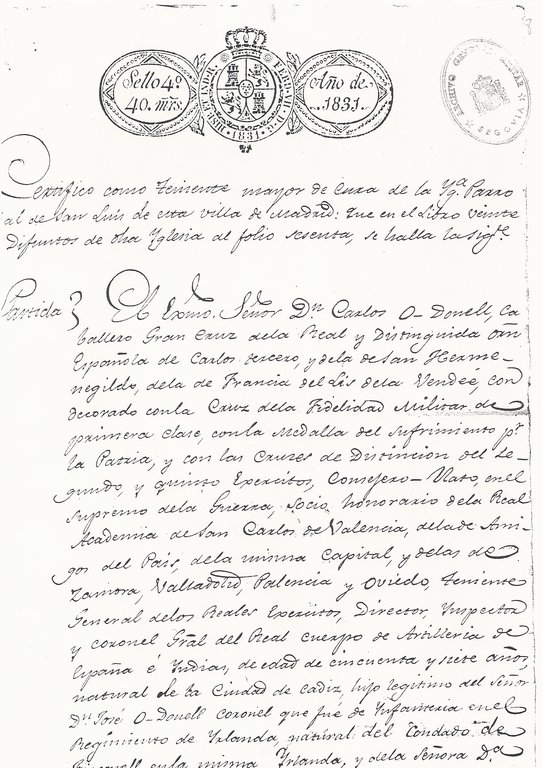 Sello 4º
40. mrs.
HISP. ET IND. R. FERD. VII. D. G.
1831
Año de
1831.
ARCHIVO GENERAL MILITAR
SEGOVIA
Certifico como teniente mayor de cura de la Ygª Parro
al de San Luis de esta villa de Madrid: que en el Libro veinte
Difuntos de dha Yglesia al folio sesenta, se halla la sigte.
Partida } El Exmo. Señor Dn Carlos O-Donell, Ca
ballero Gran Cruz dela Real y Distinguida orn
Española de Carlos tercero, y dela de San Herme-
negildo, dela de Francia del Lis dela Vendeé, con
decorado conla Cruz dela Fidelidad Militar de
primera clase, conla Medalla del Sufrimiento pr
la Patria, y con las Cruzes de Distincion del Se-
gundo, y quinto Exercitos, Consejero-Nato, en el
Supremo dela Guerra, Socio honorario dela Real
Academia de San Carlos de Valencia, dela de Ami-
gos del Pais, dela misma Capital, y delas de
Zamora, Valladolid, Palencia y Oviedo, teniente
General delos Reales Exercitos, Director, Ynspector
y coronel Gral del Real cuerpo de Artilleria de
España é Yndias, de edad de cincuenta y siete años,
natural de la Ciudad de cadiz, hijo legitimo del Señor
Dn José O-Donell Coronel que fue de Ynfanteria en el
Regimiento de Yrlanda, natural del Condado de
en la misma Yrlanda, y dela Señora Dª